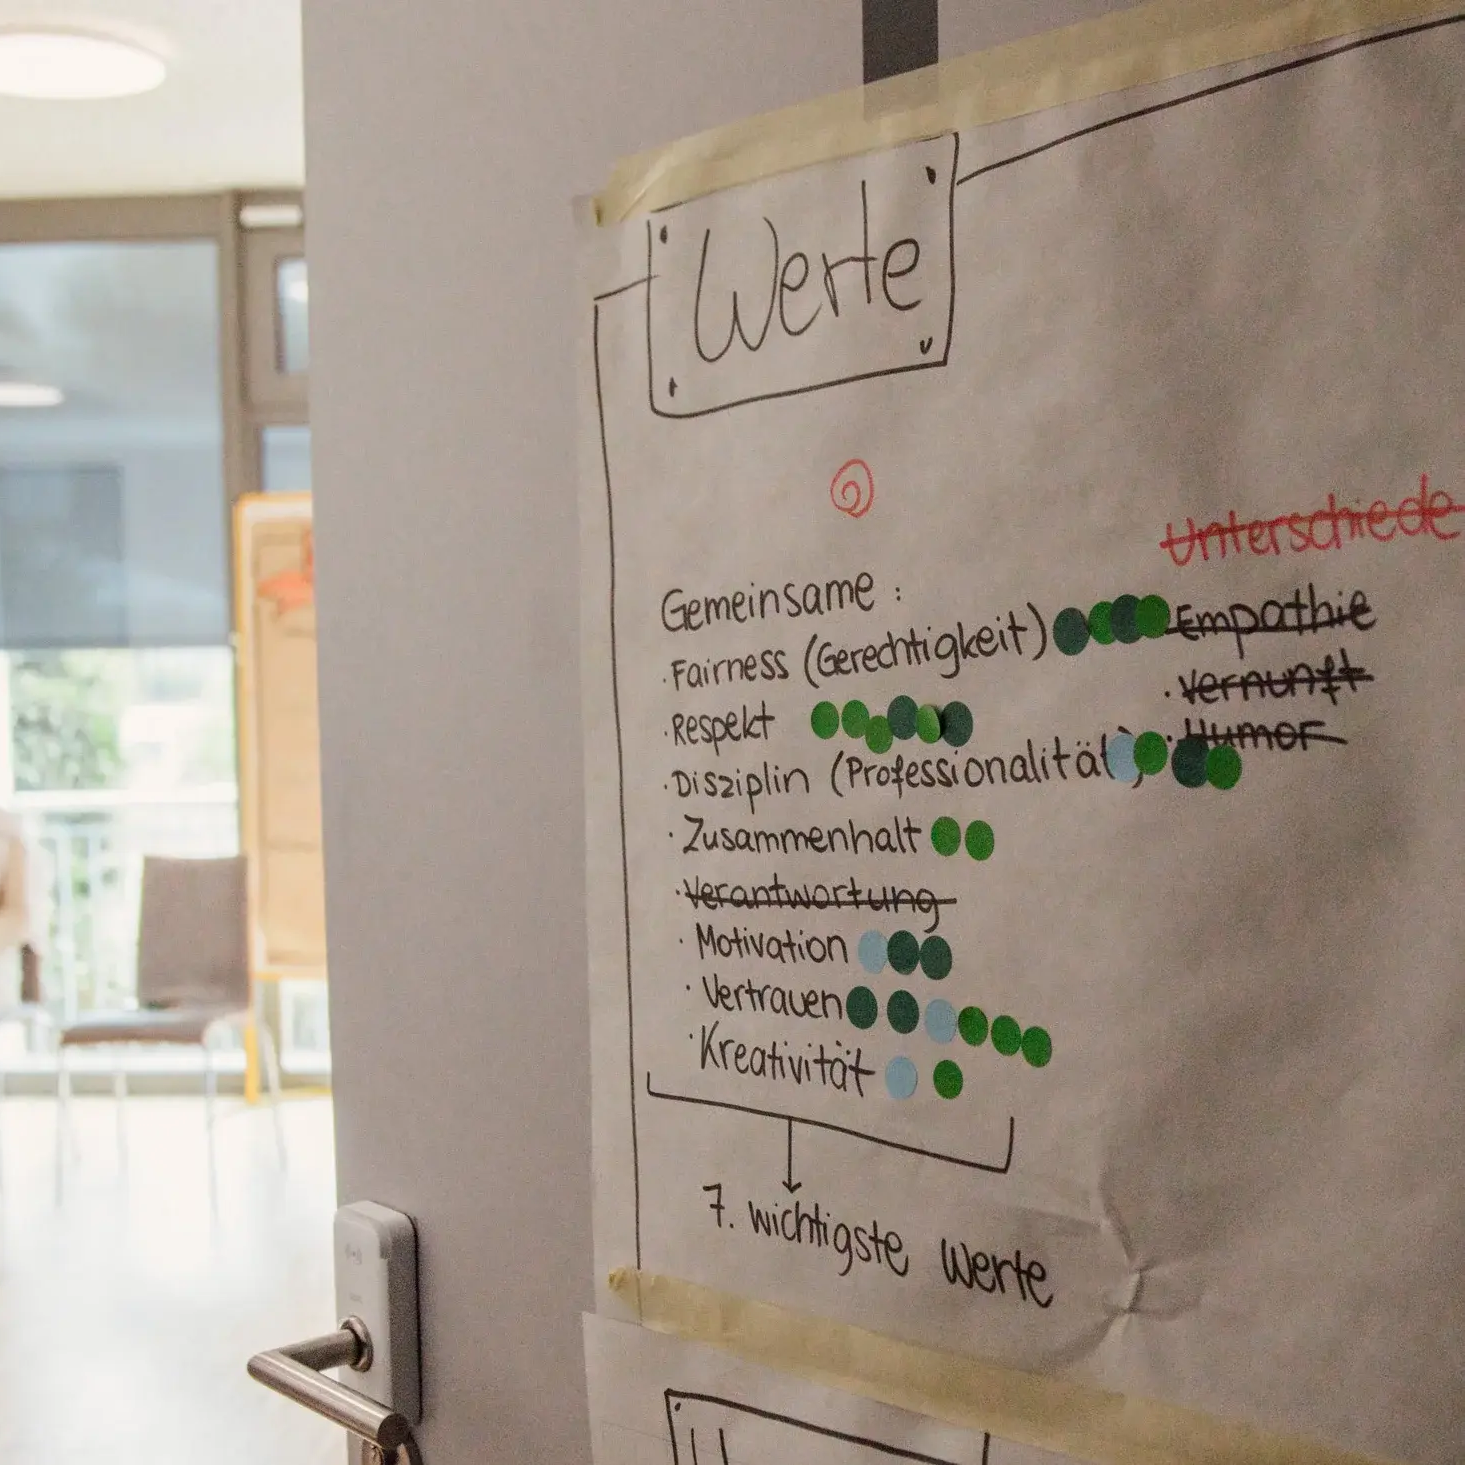 Werte
Unterschiede
Gemeinsame :
· Fairness (Gerechtigkeit)
Empathie
· Respekt
· Vernunft
· Disziplin (Professionalität)
· Humor
· Zusammenhalt
· Verantwortung
· Motivation
· Vertrauen
· Kreativität
7. wichtigste Werte